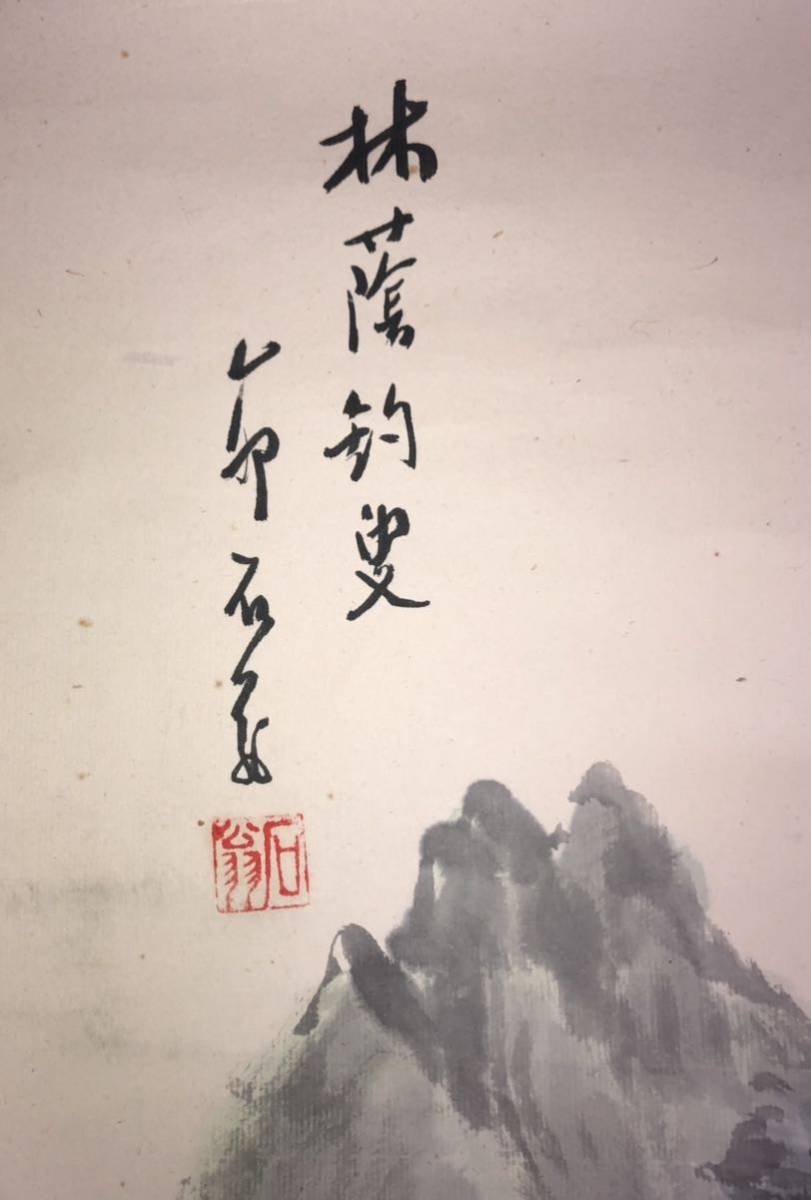 林蔭釣叟
乙卯石翁
石翁